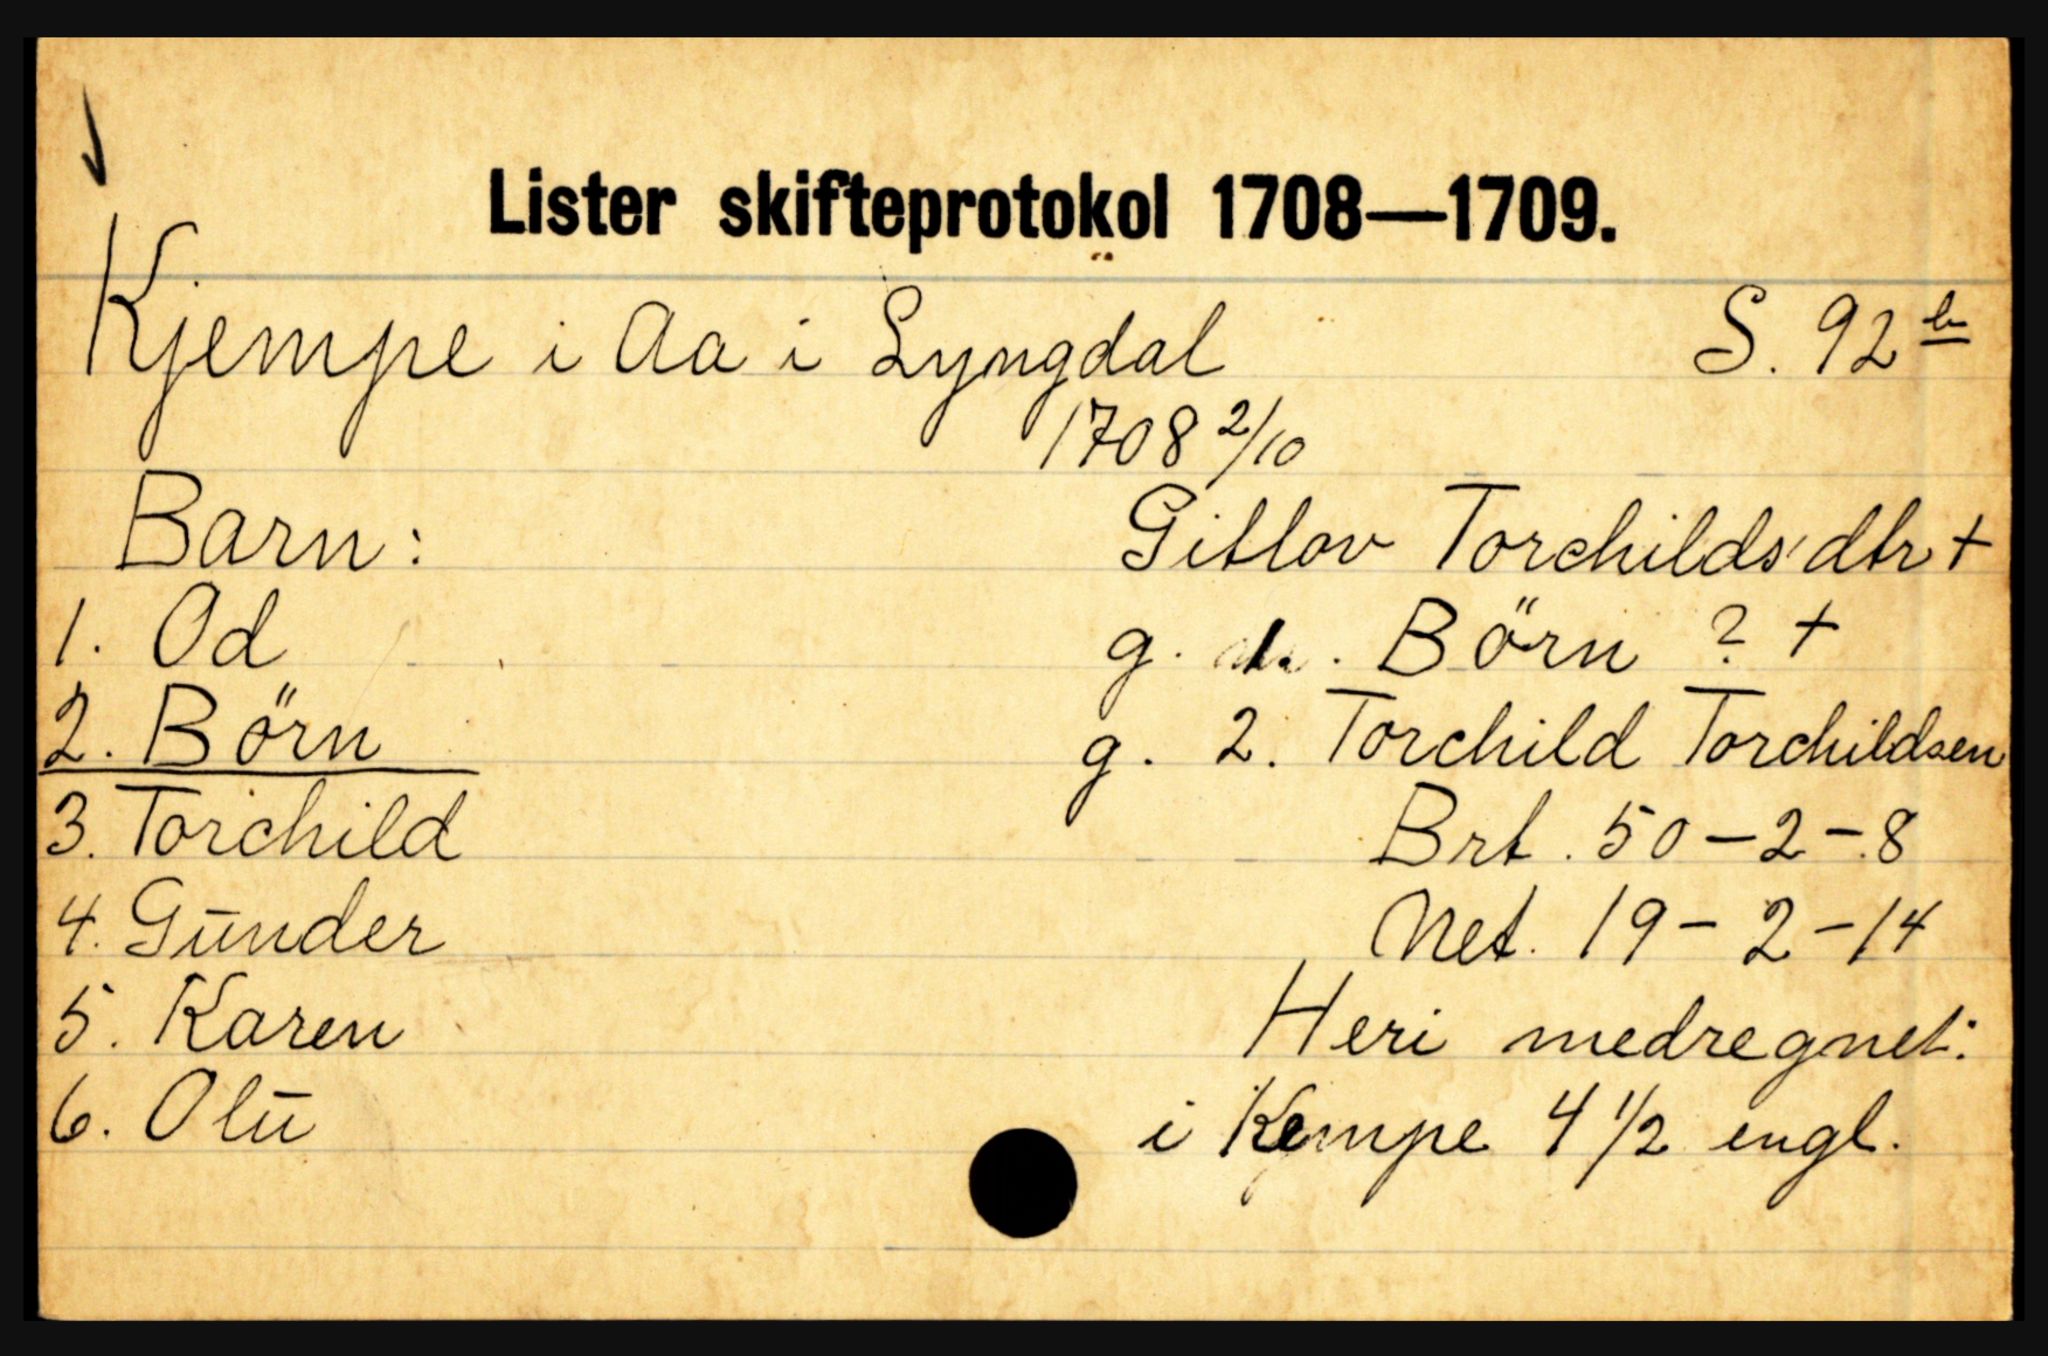 Lister skifteprotokol 1708—1709.
Kjempe i Aa i Lyngdal S. 92 b
1708 2/10
Barn: Gitlov Torchilds'dtr +
1. Od g. 1. Börn ? +
2. Börn g. 2. Torchild Torchildsen
3. Torchild Brt. 50-2-8
4. Gūnder Net. 19-2-14
5. Karen Heri medregnet:
6. Olū i Kempe 4 1/2 engl.